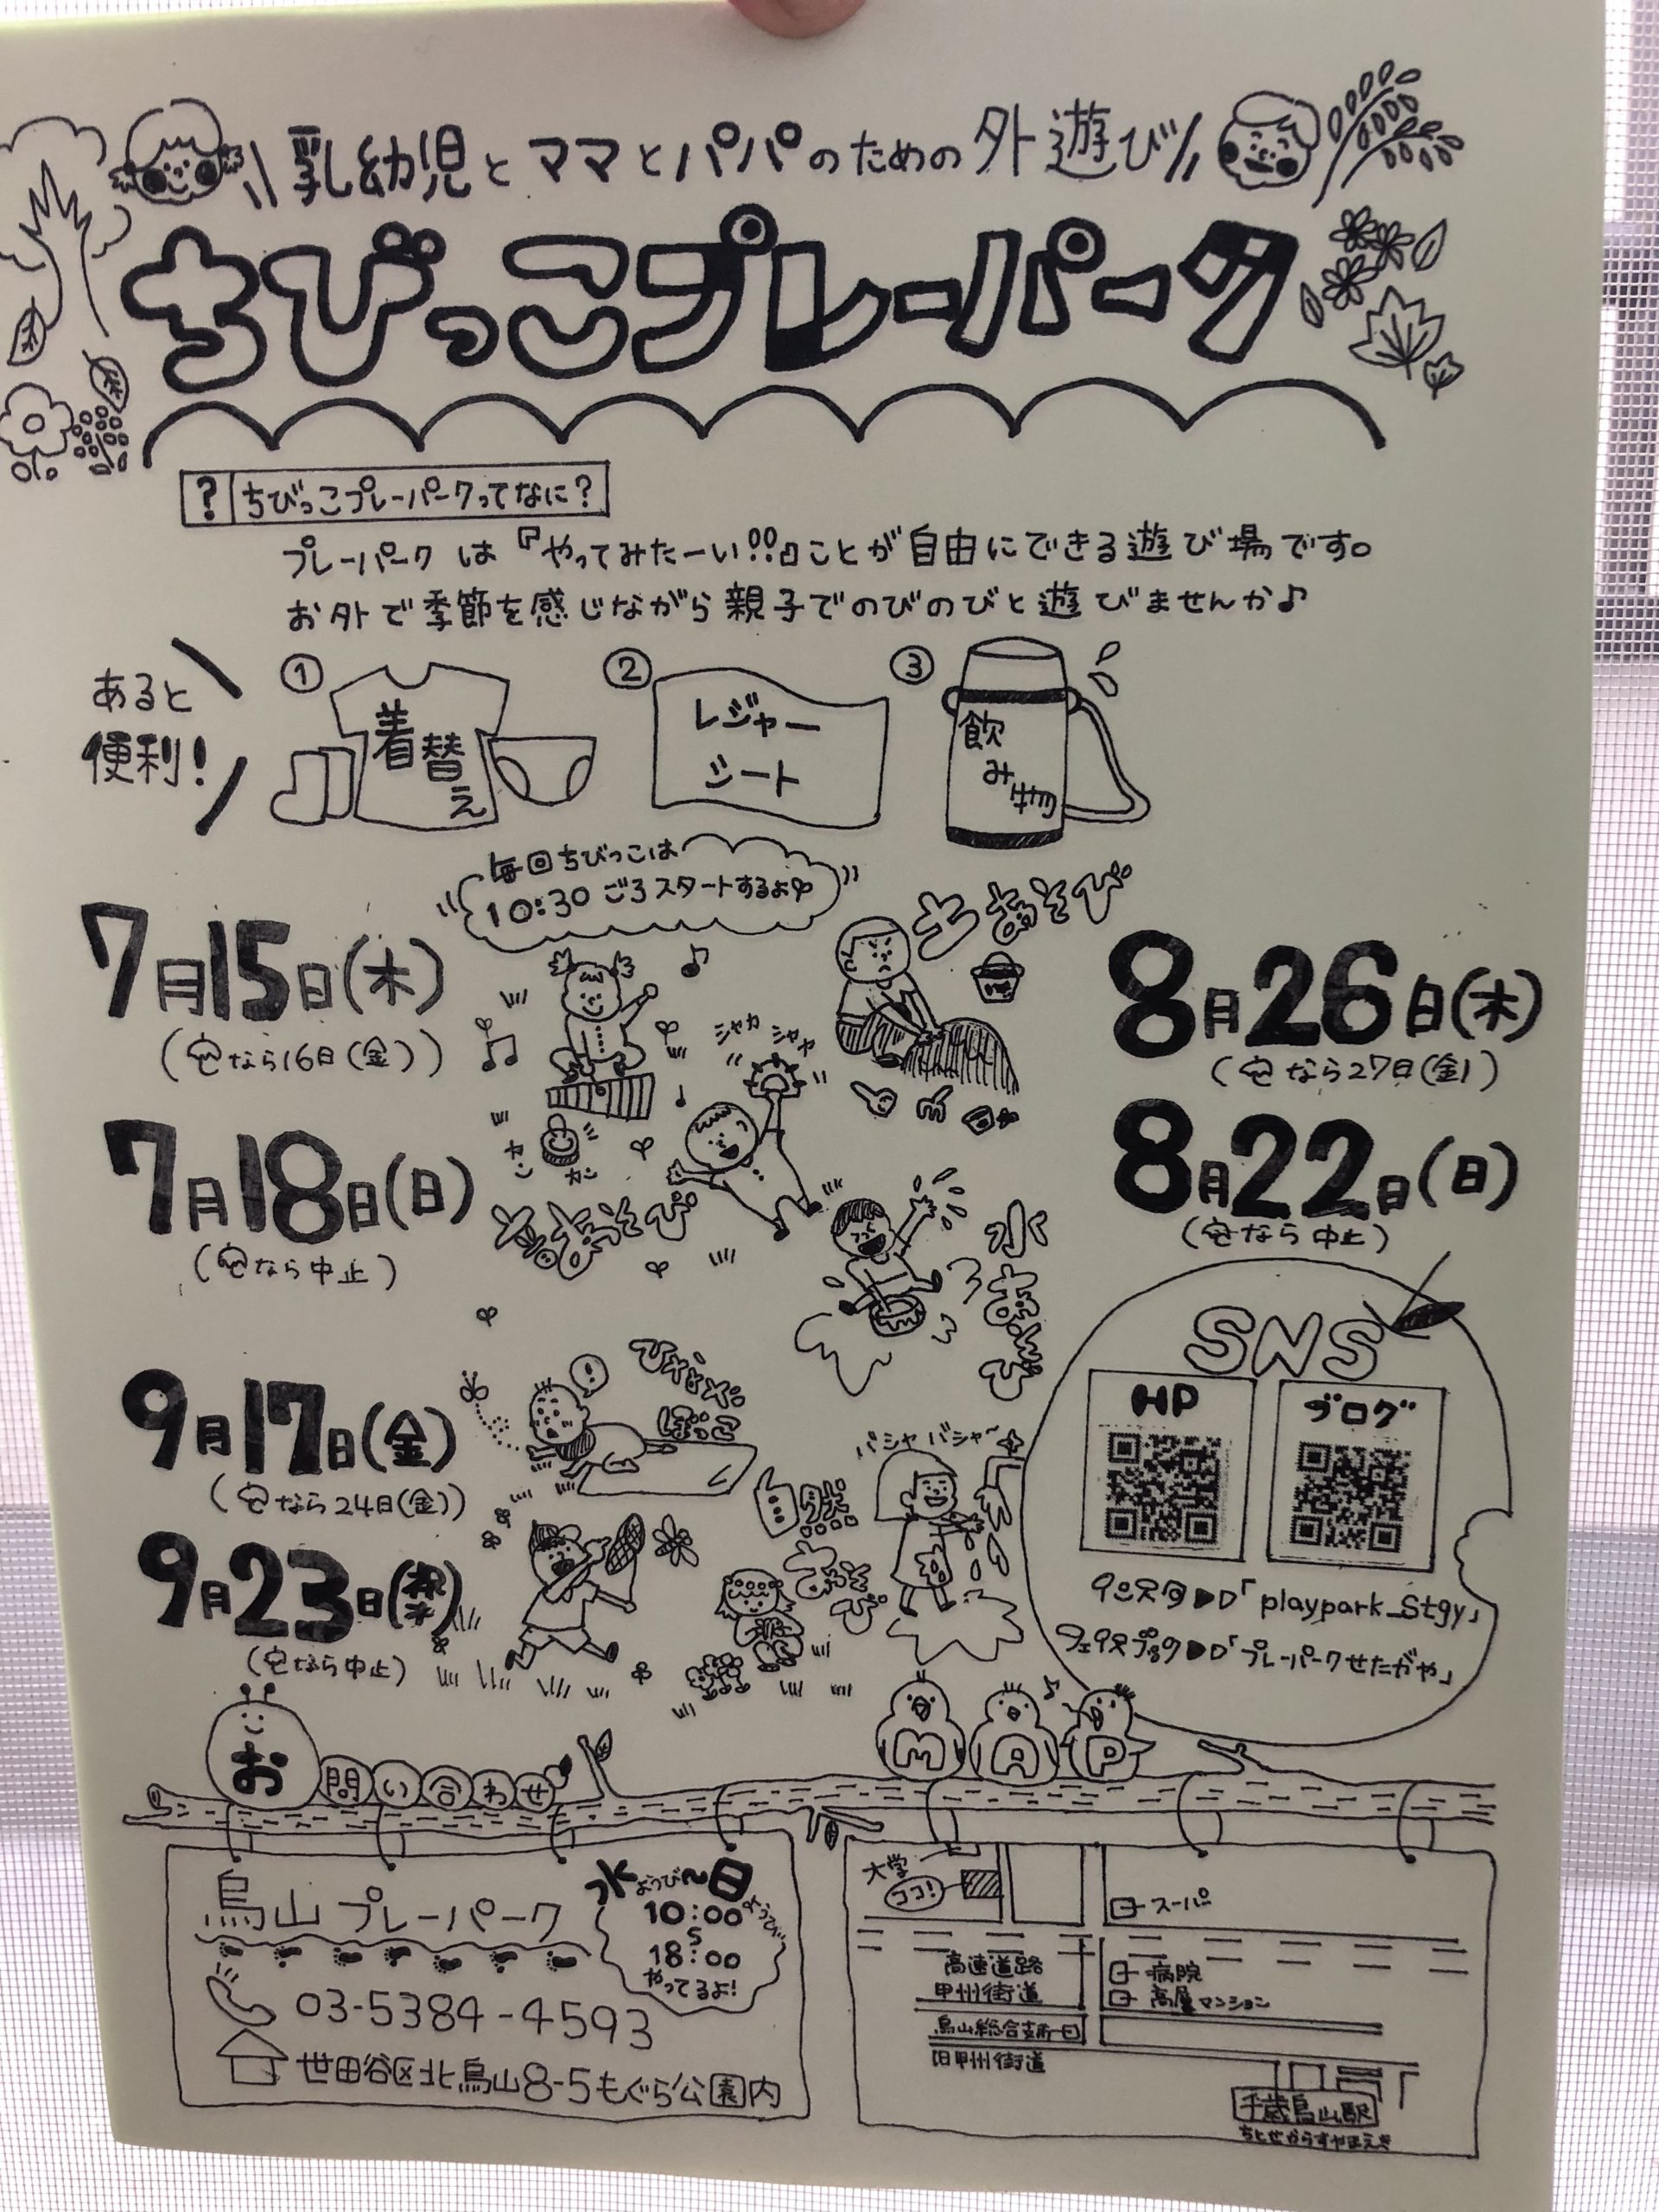 乳幼児とママとパパのための外遊び
ちびっこプレーパーク
? ちびっこプレーパークってなに?
プレーパークは『やってみたーい!!』ことが自由にできる遊び場です。
お外で季節を感じながら親子でのびのびと遊びませんか♪
あると
便利!
① 着替え
② レジャーシート
③ 飲み物
毎回ちびっこは
10:30ごろスタートするよ
7月15日(木)
(なら16日(金))
7月18日(日)
(なら中止)
9月17日(金)
(なら24日(金))
9月23日(祝木)
(なら中止)
土あそび
シャカシャカ
カンカン
音あそび
水あそび
ひなたぼっこ
バシャバシャ
自然あそび
8月26日(木)
(なら27日(金))
8月22日(日)
(なら中止)
SNS
HP
ブログ
インスタ▶「playpark_stgy」
フェイスブック▶「プレーパークせたがや」
お問い合わせ
烏山プレーパーク
水ようび〜日ようび
10:00
18:00
やってるよ!
03-5384-4593
世田谷区北烏山8-5もぐら公園内
MAP
大学
ココ!
スーパー
高速道路
甲州街道
病院
高層マンション
烏山総合支所
旧甲州街道
千歳烏山駅
ちとせからすやまえき